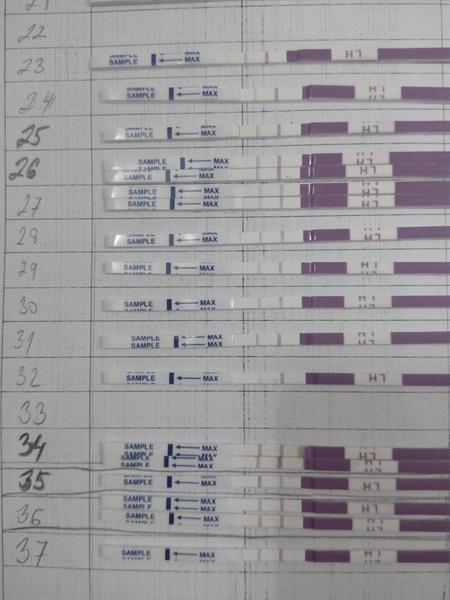 22
23 SAMPLE MAX LH
24 SAMPLE MAX LH
25 SAMPLE MAX LH
26 SAMPLE MAX LH
SAMPLE MAX LH
27 SAMPLE MAX LH
SAMPLE MAX LH
28 SAMPLE MAX LH
29 SAMPLE MAX LH
30 SAMPLE MAX LH
31 SAMPLE MAX LH
32 SAMPLE MAX LH
33
34 SAMPLE MAX LH
SAMPLE MAX LH
35 SAMPLE MAX LH
36 SAMPLE MAX LH
SAMPLE MAX LH
37 SAMPLE MAX LH